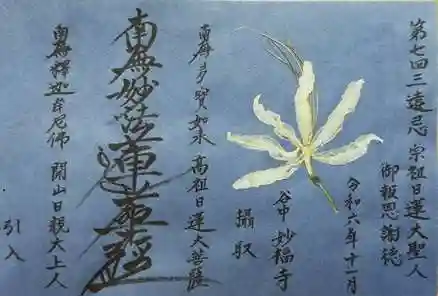 第七四三遠忌 宗祖日蓮大聖人
御報恩謝徳
令和六年十一月
谷中 妙福寺
攝取
南無多寶如来 高祖日蓮大菩薩
南無妙法蓮華經
南無釋迦牟尼佛 開山日親大上人
引入